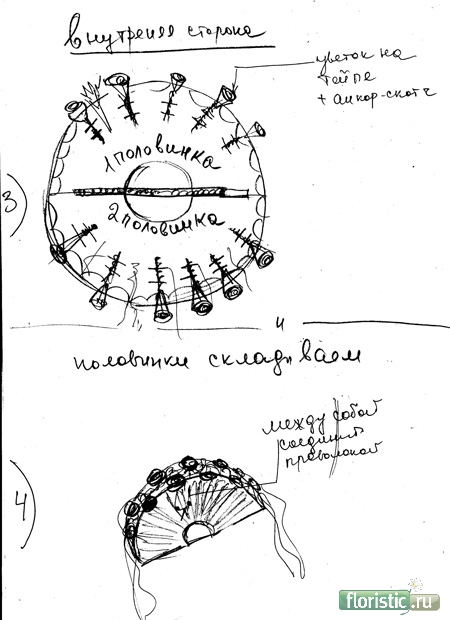 внутреняя сторона
цветок на
тейпе
+ анкор-скотч
1 половинка
3)
2 половинка
и
половинки складываем
между собой
соединить
проволокой
4)
floristic.ru